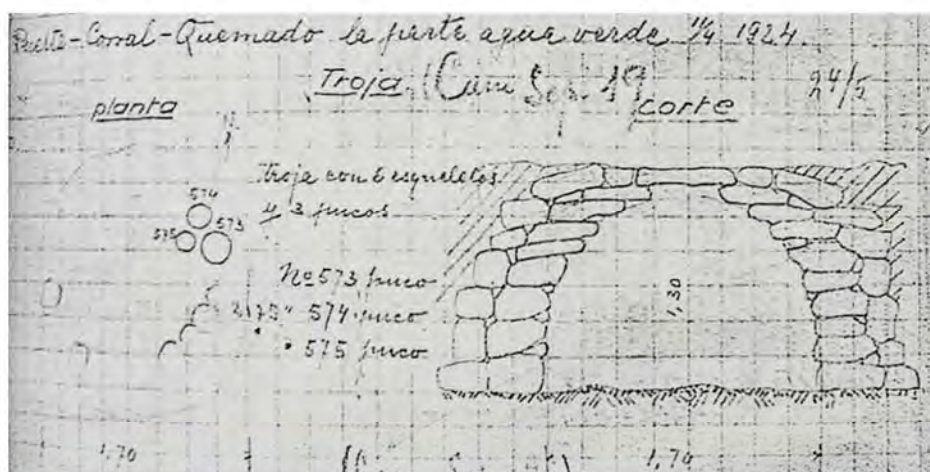 Puerta-Corral-Quemado la parte agua verde 11/4 1924.
Troja (Cam Sep. 19) 24/5
planta corte
troja con 6 esqueletos
y 3 pucos
574
575 573
No 573 puco
" 574 puco
" 575 puco
1,30
1,70 1,70